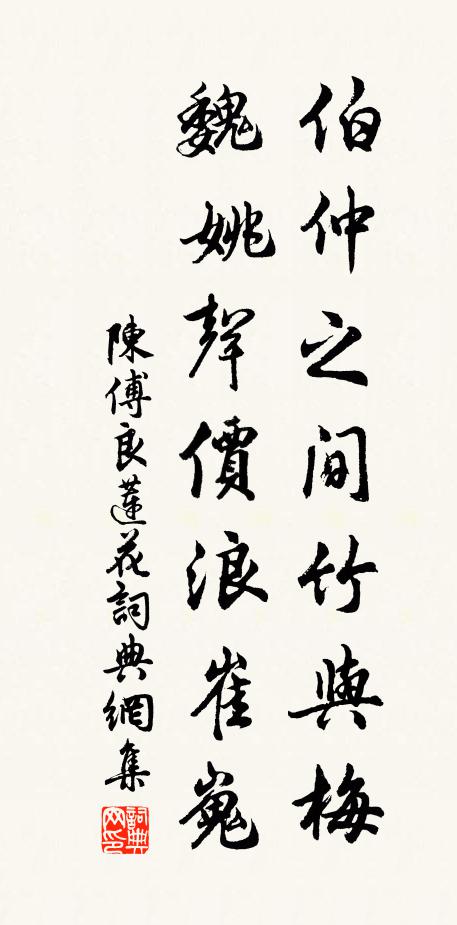 伯仲之间竹與梅
魏姚聲價浪崔嵬
陳傅良蓮花詞典網集
詞典网印